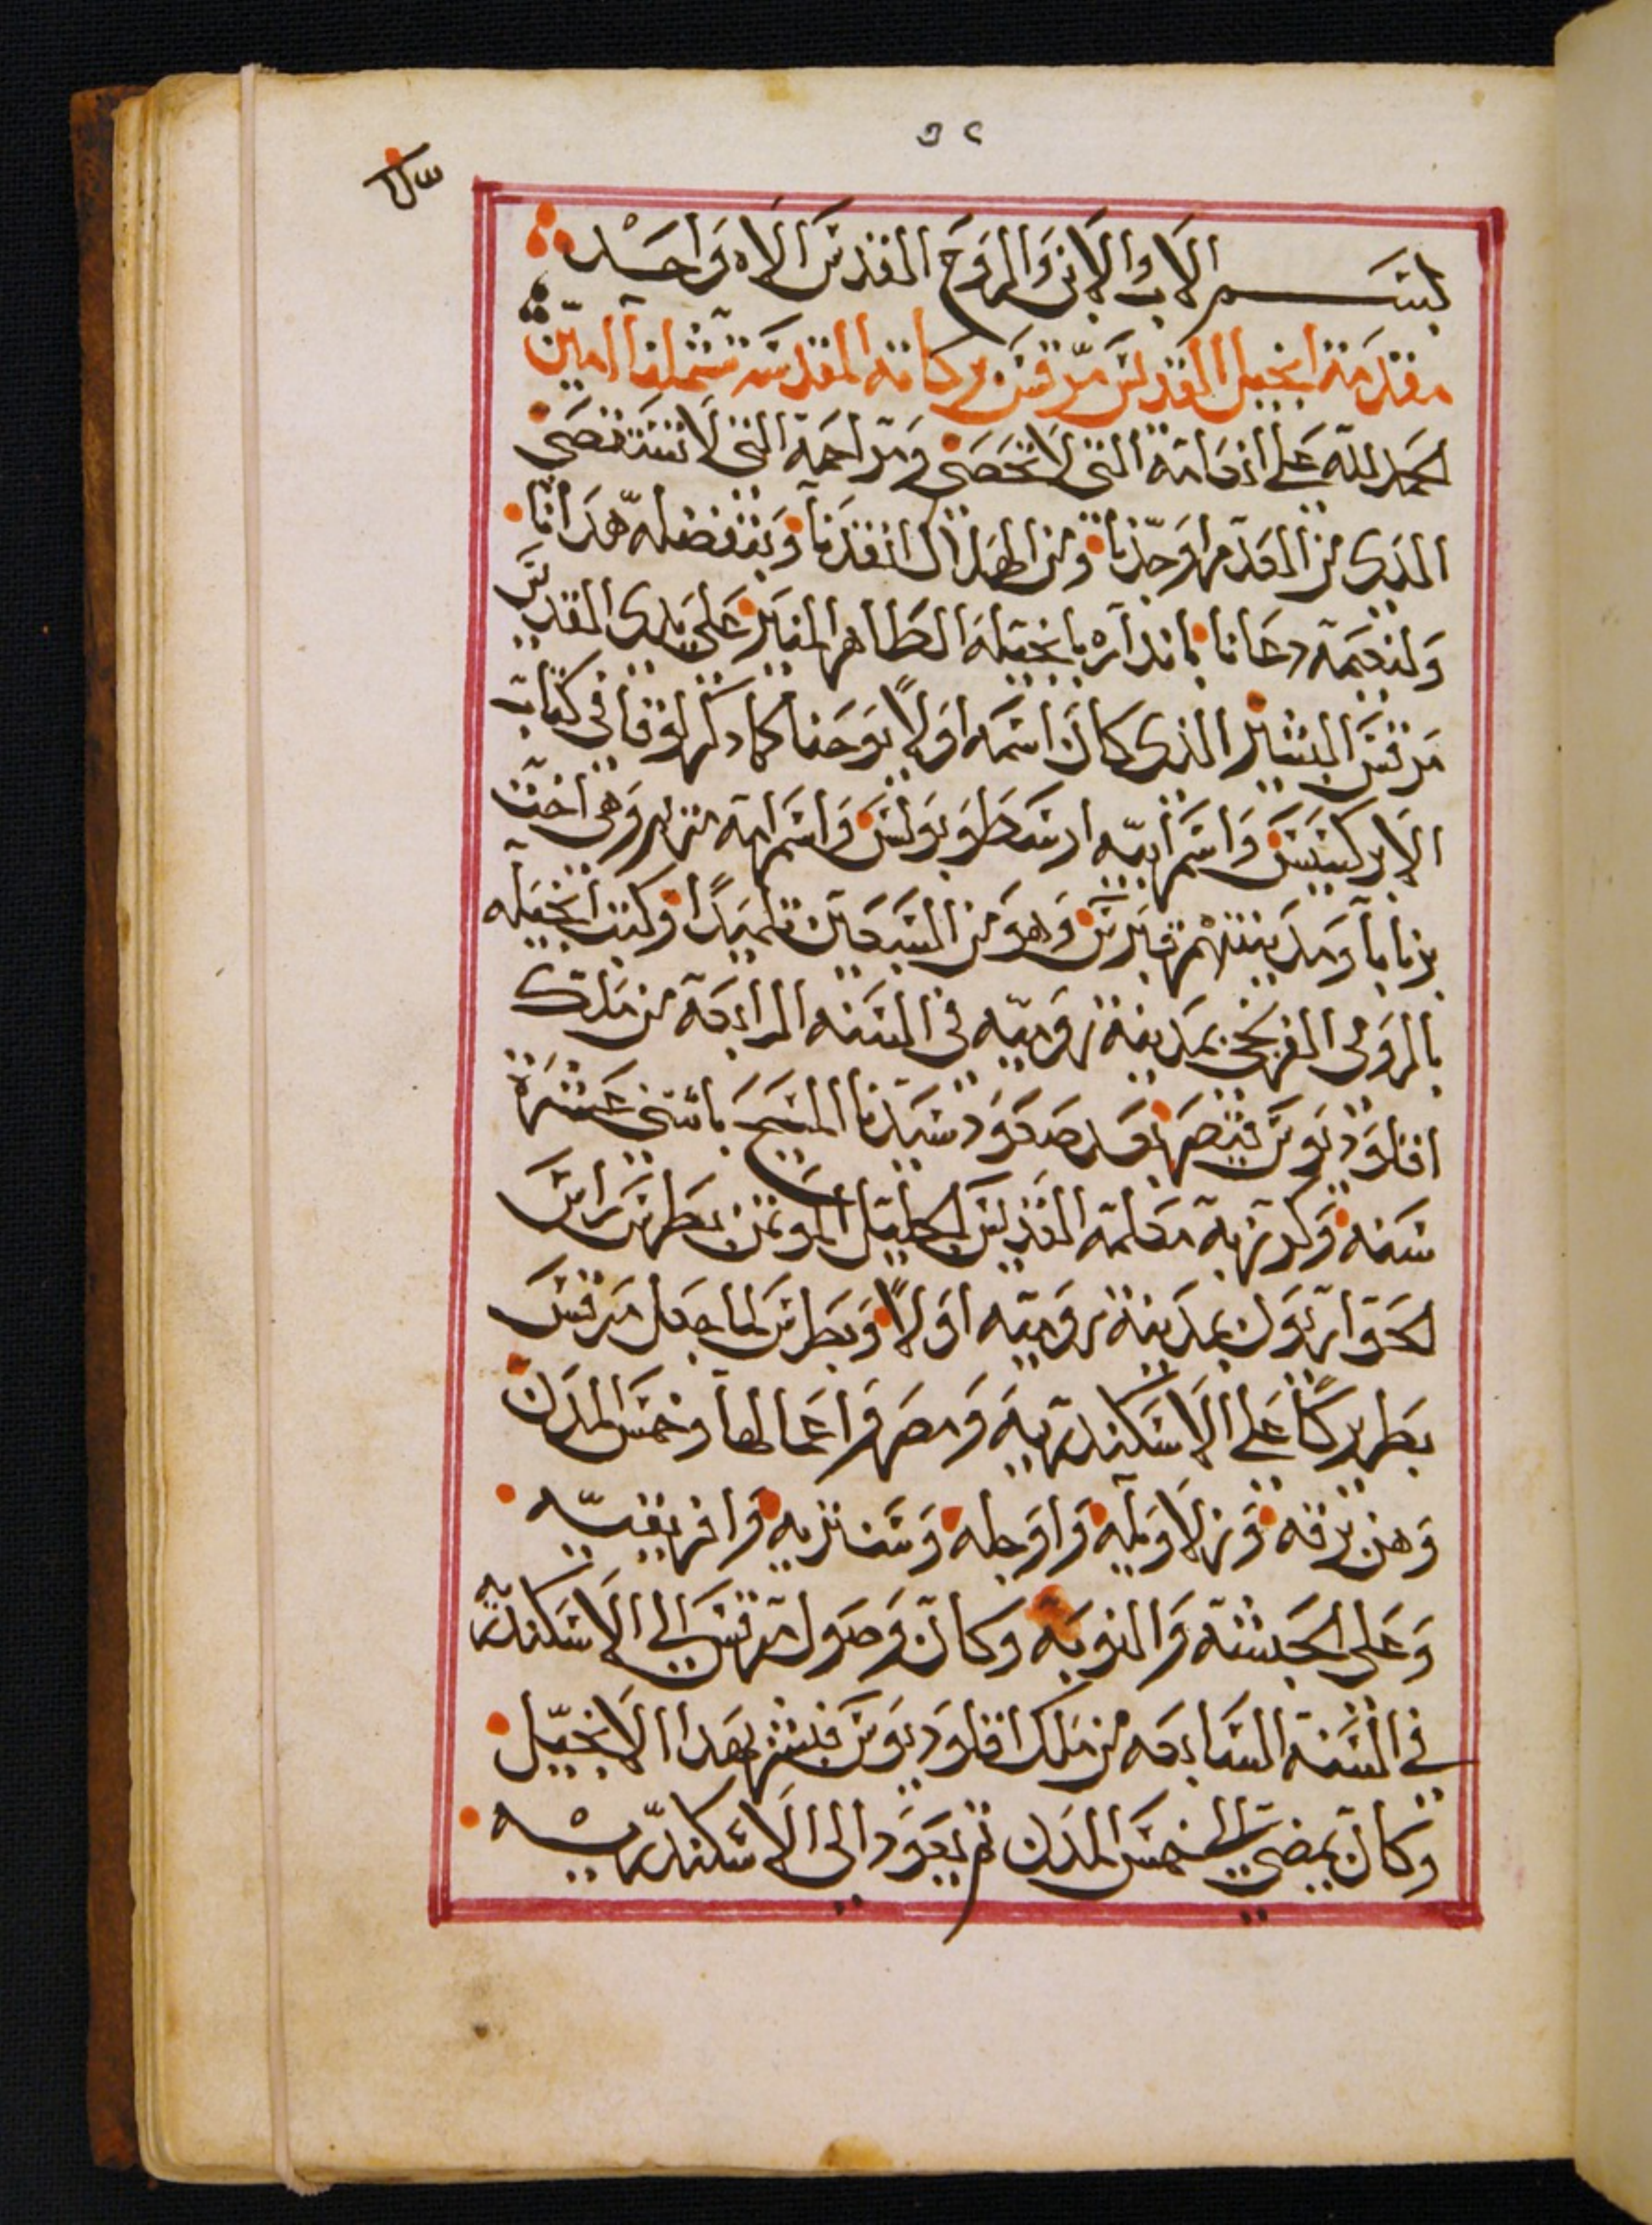 بسم الاب والابن والروح القدس الاه واحد
مقدمة انجيل القديس مرقس بركاته المقدسه تشملنا امين
الحمد لله على انعامه التى لا تحصى ومراحمه التى لا تستقصى
الدى من العدم اوجدنا ومن الضلال انقدنا وبتفضله هدانا
ولنعمه دعانا باندآره بانجيله الطاهر المنير على يدى القديس
مرقس البشير الذى كان اسمه اولاً يوحنا كما دكر لوقا فى كتاب
الابركسيس واسم ابيه ارسطوبولس واسم امه مريم وهى اخت
برنابا ومدينتهم قبرس وهو من السبعين تلميداً وكتب انجيله
بالرومى الفرنجى بمدينة روميه فى السنه الرابعه من ملك
اقلوديوس قيصر بعد صعود سيدنا المسيح باتنى عشرة
سنه وكرز به معلمه القديس الجليل الموتمن بطرس راس
الحواريون بمدينة روميه اولاً وبطرس لما جعل مرقس
بطريركاً على الاسكندريه ومصر واعمالها وخمس المدن
وهن برقه وزلاويله واوجله وسنتريه وافريقيه
وعلى الحبشة والنوبه وكان وصول مرقس الى الاسكندريه
فى السنه السابعه من ملك اقلوديوس فبشر بهدا الانجيل
وكان يمضى الى خمس المدن تم يعود الى الاسكندريه